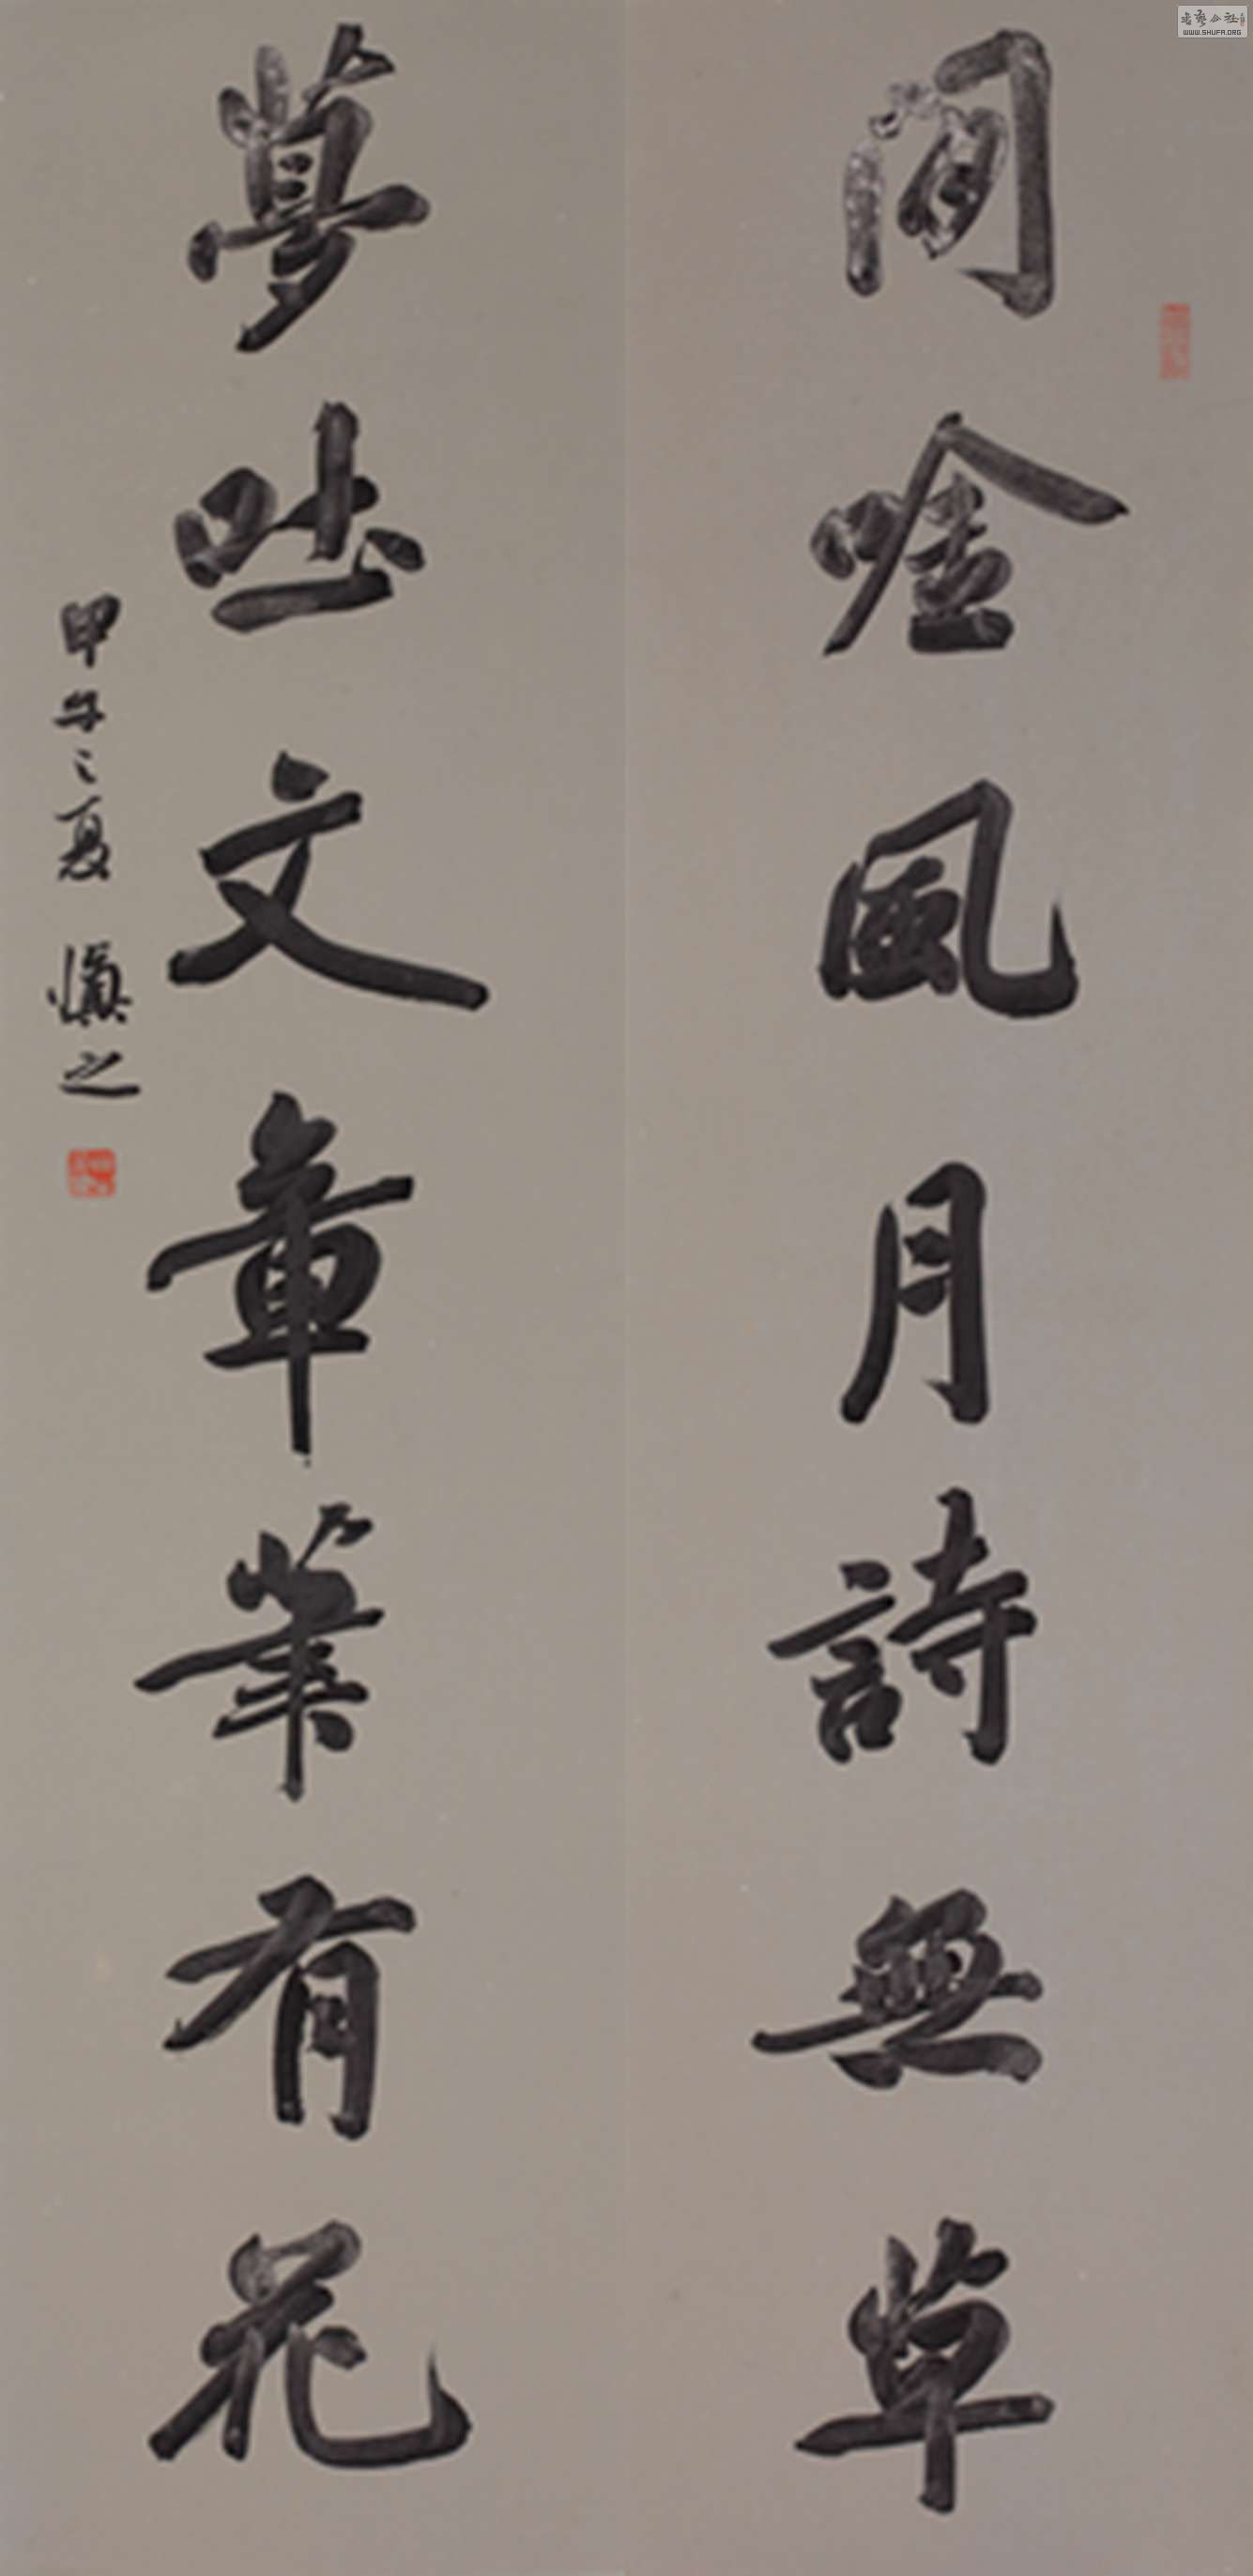 閒唫風月詩無草
夢吐文章筆有花
甲子之夏 慎之
書藝公社
WWW.SHUFA.ORG